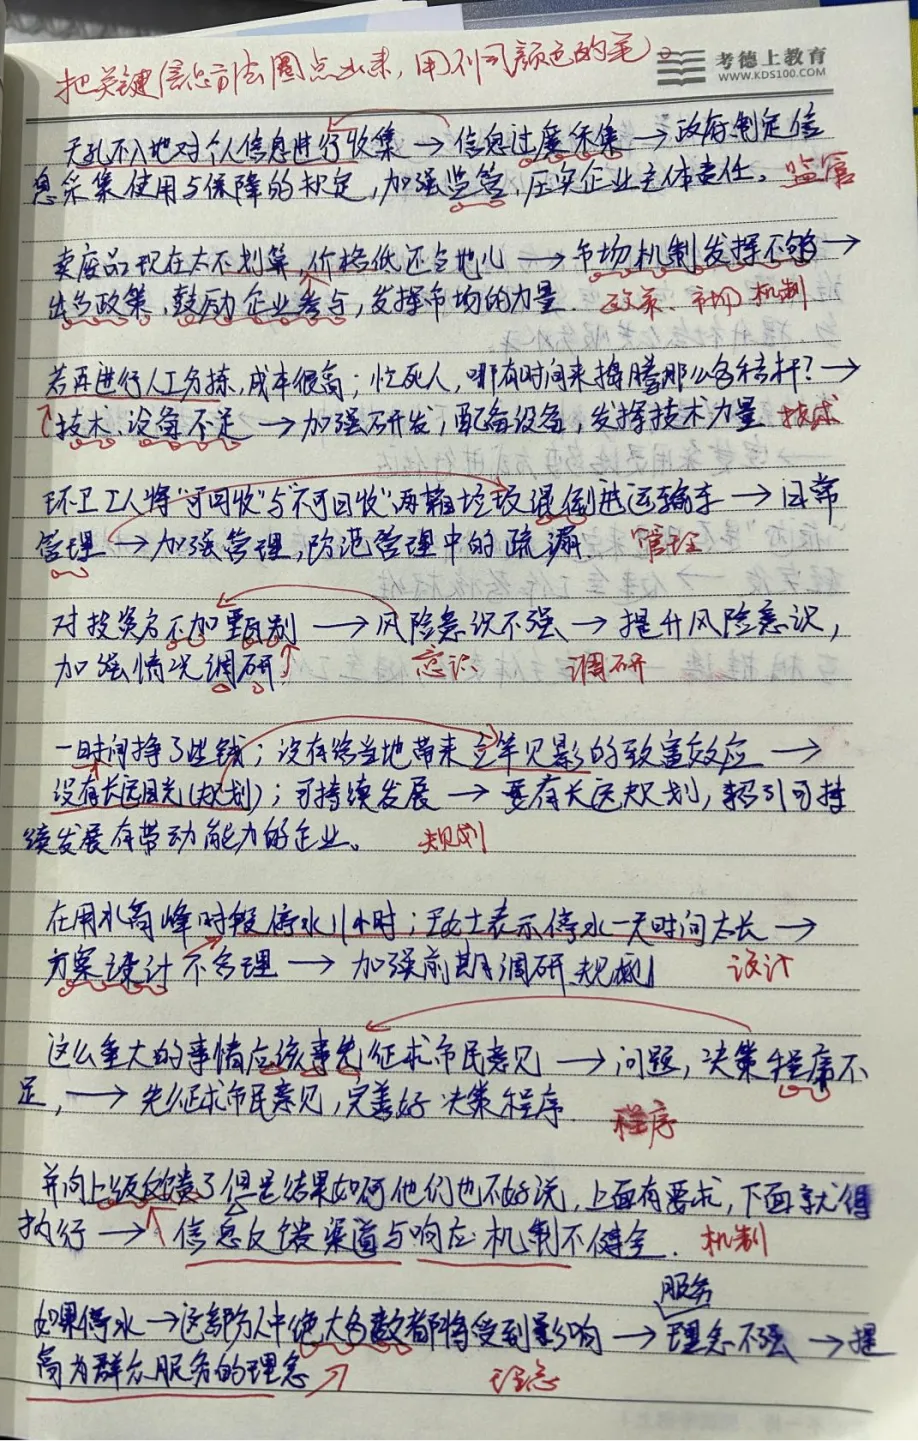 把关键信息方法圈点出来，用不同颜色的笔。
考德上教育
WWW.KDS100.COM
无孔不入地对个人信息进行收集 → 信息过度采集 → 政府制定信
息采集使用与保障的规定，加强监管，压实企业主体责任。 监管
卖废品现在太不划算，价格低还占地儿 → 市场机制发挥不够 →
出台政策、鼓励企业参与，发挥市场的力量. 政策、市场 机制
若再进行人工分拣，成本很高；忙死人，哪有时间来捣腾那么多秸秆？→
技术、设备不足 → 加强研发，配备设备，发挥技术力量. 技术
环卫工人将“可回收”与“不可回收”两箱垃圾混倒进运输车 → 日常
管理 → 加强管理，防范管理中的疏漏. 管理
对投资方不加甄别 → 风险意识不强 → 提升风险意识，
加强情况调研. 意识 调研
一时间挣了些钱；没有给当地带来立竿见影的致富效应 →
没有长远目光（规划）；可持续发展 → 要有长远规划，招引可持
续发展有带动能力的企业。 规划
在用水高峰时段停水11小时；王女士表示停水一天时间太长 →
方案设计不合理 → 加强前期调研、规划 设计
这么重大的事情应该事先征求市民意见 → 问题，决策程序不
足， → 先征求市民意见，完善好决策程序. 程序
并向上级反馈了但是结果如何他们也不好说，上面有要求，下面就得
执行 → 信息反馈渠道与响应机制不健全. 机制
服务
如果停水 → 这部分人中绝大多数都将受到影响 → 理念不强 → 提
高为群众服务的理念 理念